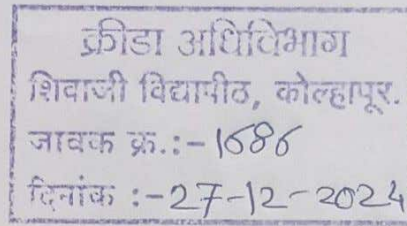 क्रीडा अधिविभाग
शिवाजी विद्यापीठ, कोल्हापूर.
जावक क्र.:-1686
दिनांक :-27-12-2024